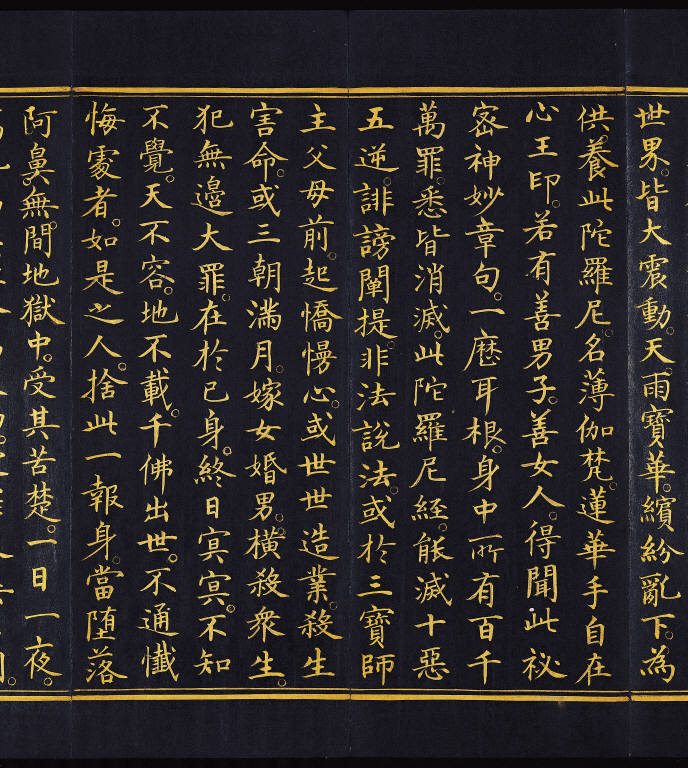 世界。皆大震動。天雨寶華。繽紛亂下。為
供養此陀羅尼。名薄伽梵。蓮華手自在
心王印。若有善男子。善女人。得聞此祕
密神妙章句。一歷耳根。身中所有百千
萬罪。悉皆消滅。此陀羅尼經。能滅十惡
五逆。誹謗闡提。非法說法。或於三寶師
主父母前。起憍慢心。或世世造業。殺生
害命。或三朝滿月。嫁女婚男。橫殺衆生。
犯無邊大罪。在於己身。終日冥冥。不知
不覺。天不容。地不載。千佛出世。不通懺
悔處者。如是之人。捨此一報身。當堕落
阿鼻。無間地獄中。受其苦楚。一日一夜。